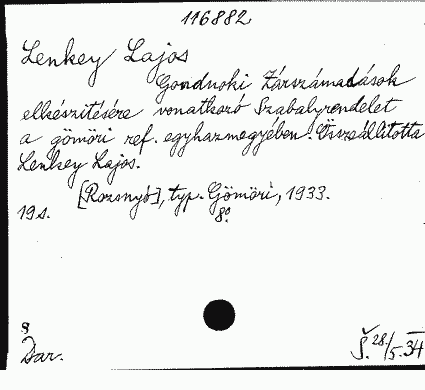 116882
Lenkey Lajos
Gondnoki Zárszámadások
elkészitésére vonatkozó Szabályrendelet
a gömöri ref. egyházmegyében. Összeállitotta
Lenkey Lajos.
[Rozsnyó], typ. Gömöri, 1933.
19 s. 8°
8
Dar. Š. 28/5.34